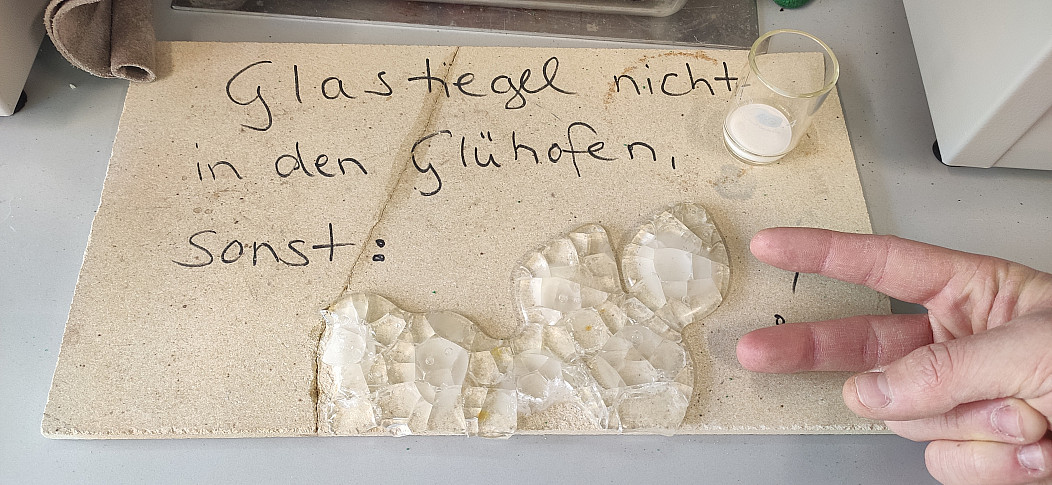 Glastiegel nicht
in den Glühofen,
sonst:
!